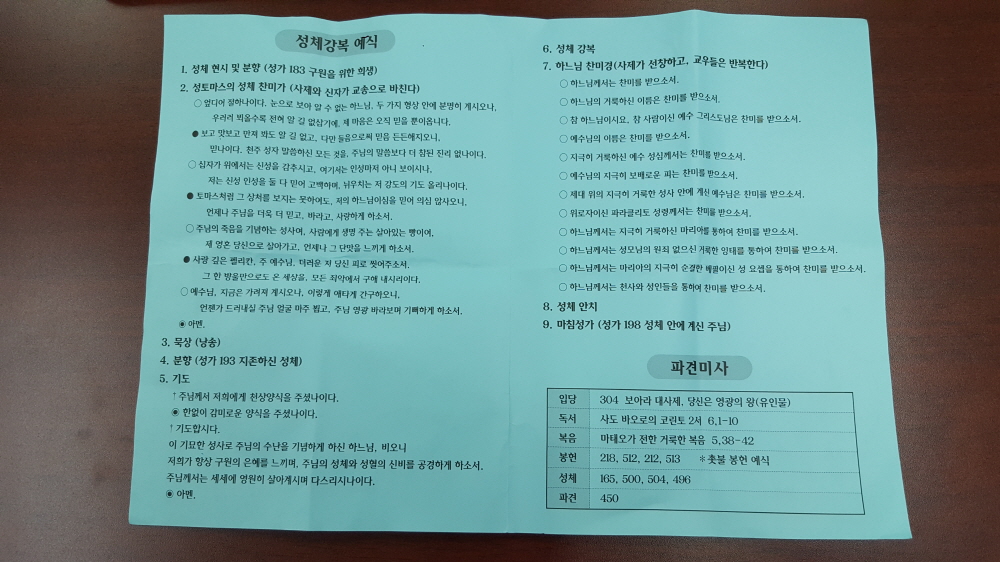 성체강복 예식
1. 성체 현시 및 분향 (성가 183 구원을 위한 희생)
2. 성토마스의 성체 찬미가 (사제와 신자가 교송으로 바친다)
○ 엎디어 절하나이다. 눈으로 보아 알 수 없는 하느님, 두 가지 형상 안에 분명히 계시오나,
우러러 뵈올수록 전혀 알 길 없삽기에, 제 마음은 오직 믿을 뿐이옵니다.
● 보고 맛보고 만져 봐도 알 길 없고, 다만 들음으로써 믿음 든든해지오니,
믿나이다. 천주 성자 말씀하신 모든 것을, 주님의 말씀보다 더 참된 진리 없나이다.
○ 십자가 위에서는 신성을 감추시고, 여기서는 인성마저 아니 보이시나,
저는 신성 인성을 둘 다 믿어 고백하며, 뉘우치는 저 강도의 기도 올리나이다.
● 토마스처럼 그 상처를 보지는 못하여도, 저의 하느님이심을 믿어 의심 않사오니,
언제나 주님을 더욱 더 믿고, 바라고, 사랑하게 하소서.
○ 주님의 죽음을 기념하는 성사여, 사람에게 생명 주는 살아있는 빵이여,
제 영혼 당신으로 살아가고, 언제나 그 단맛을 느끼게 하소서.
● 사랑 깊은 펠리칸, 주 예수님, 더러운 저 당신 피로 씻어주소서.
그 한 방울만으로도 온 세상을, 모든 죄악에서 구해 내시리이다.
○ 예수님, 지금은 가려져 계시오나, 이렇게 애타게 간구하오니,
언젠가 드러내실 주님 얼굴 마주 뵙고, 주님 영광 바라보며 기뻐하게 하소서.
◉ 아멘.
3. 묵상 (낭송)
4. 분향 (성가 193 지존하신 성체)
5. 기도
↑ 주님께서 저희에게 천상양식을 주셨나이다.
◉ 한없이 감미로운 양식을 주셨나이다.
↑ 기도합시다.
이 기묘한 성사로 주님의 수난을 기념하게 하신 하느님, 비오니
저희가 항상 구원의 은혜를 느끼며, 주님의 성체와 성혈의 신비를 공경하게 하소서.
주님께서는 세세에 영원히 살아계시며 다스리시나이다.
◉ 아멘.
6. 성체 강복
7. 하느님 찬미경(사제가 선창하고, 교우들은 반복한다)
○ 하느님께서는 찬미를 받으소서.
○ 하느님의 거룩하신 이름은 찬미를 받으소서.
○ 참 하느님이시요, 참 사람이신 예수 그리스도님은 찬미를 받으소서.
○ 예수님의 이름은 찬미를 받으소서.
○ 지극히 거룩하신 예수 성심께서는 찬미를 받으소서.
○ 예수님의 지극히 보배로운 피는 찬미를 받으소서.
○ 제대 위의 지극히 거룩한 성사 안에 계신 예수님은 찬미를 받으소서.
○ 위로자이신 파라클리토 성령께서는 찬미를 받으소서.
○ 하느님께서는 지극히 거룩하신 마리아를 통하여 찬미를 받으소서.
○ 하느님께서는 성모님의 원죄 없으신 거룩한 잉태를 통하여 찬미를 받으소서.
○ 하느님께서는 마리아의 지극히 순결한 배필이신 성 요셉을 통하여 찬미를 받으소서.
○ 하느님께서는 천사와 성인들을 통하여 찬미를 받으소서.
8. 성체 안치
9. 마침성가 (성가 198 성체 안에 계신 주님)
파견미사
입당 304 보아라 대사제, 당신은 영광의 왕(유인물)
독서 사도 바오로의 코린토 2서 6,1-10
복음 마태오가 전한 거룩한 복음 5,38-42
봉헌 218, 512, 212, 513 *촛불 봉헌 예식
성체 165, 500, 504, 496
파견 450